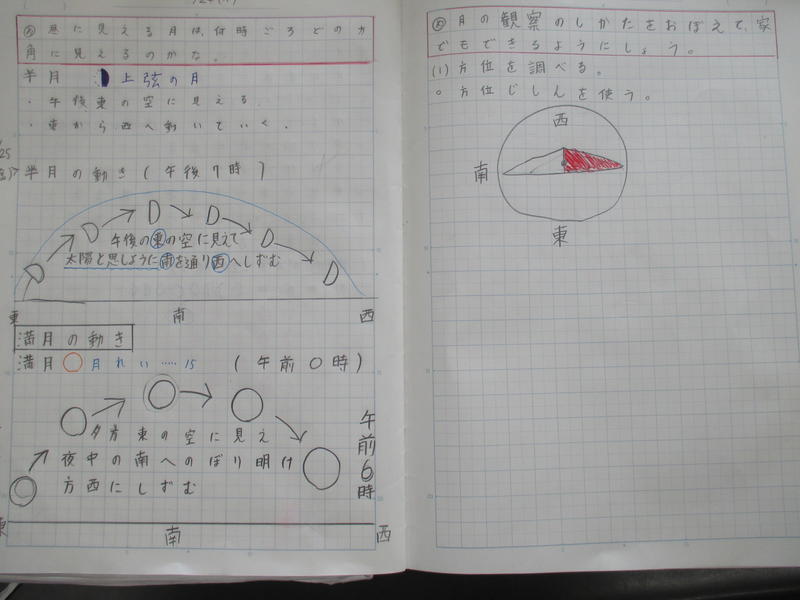 昼に見える月は、何時ごろどの方
角に見えるのかな。
半月 上弦の月
・午後東の空に見える
・東から西へ動いていく.
半月の動き(午後7時)
午後の東の空に見えて
太陽と思しように南を通り西へしずむ
東 南 西
満月の動き
満月 月れい……15 (午前0時)
夕方東の空に見え
夜中の南へのぼり明け
方西にしずむ
午前6時
東 南 西
月の観察のしかたをおぼえて、家
でもできるようにしよう。
(1)方位を調べる。
○方位じしんを使う。
西
南
東